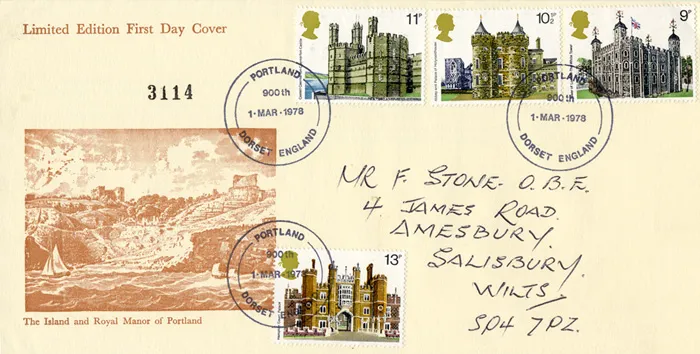 Limited Edition First Day Cover
3114
11P
10½P
9P
PORTLAND
900th
1·MAR·1978
DORSET ENGLAND
PORTLAND
900th
1·MAR·1978
DORSET ENGLAND
MR F. STONE. O.B.E.
4 JAMES ROAD.
AMESBURY.
SALISBURY.
WILTS.
SP4 7PZ.
PORTLAND
900th
1·MAR·1978
DORSET ENGLAND
13P
The Island and Royal Manor of Portland